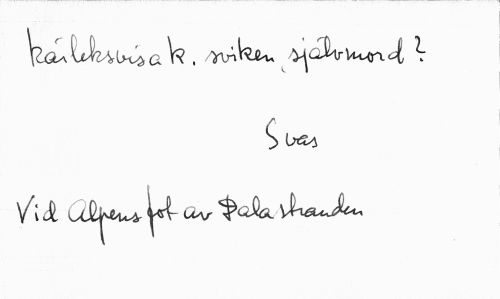 kärleksvisa k. sviken, självmord?
Svas
Vid Alpens fot av Dalastranden